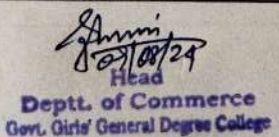 07/08/24
Head
Deptt. of Commerce
Govt. Girls' General Degree College